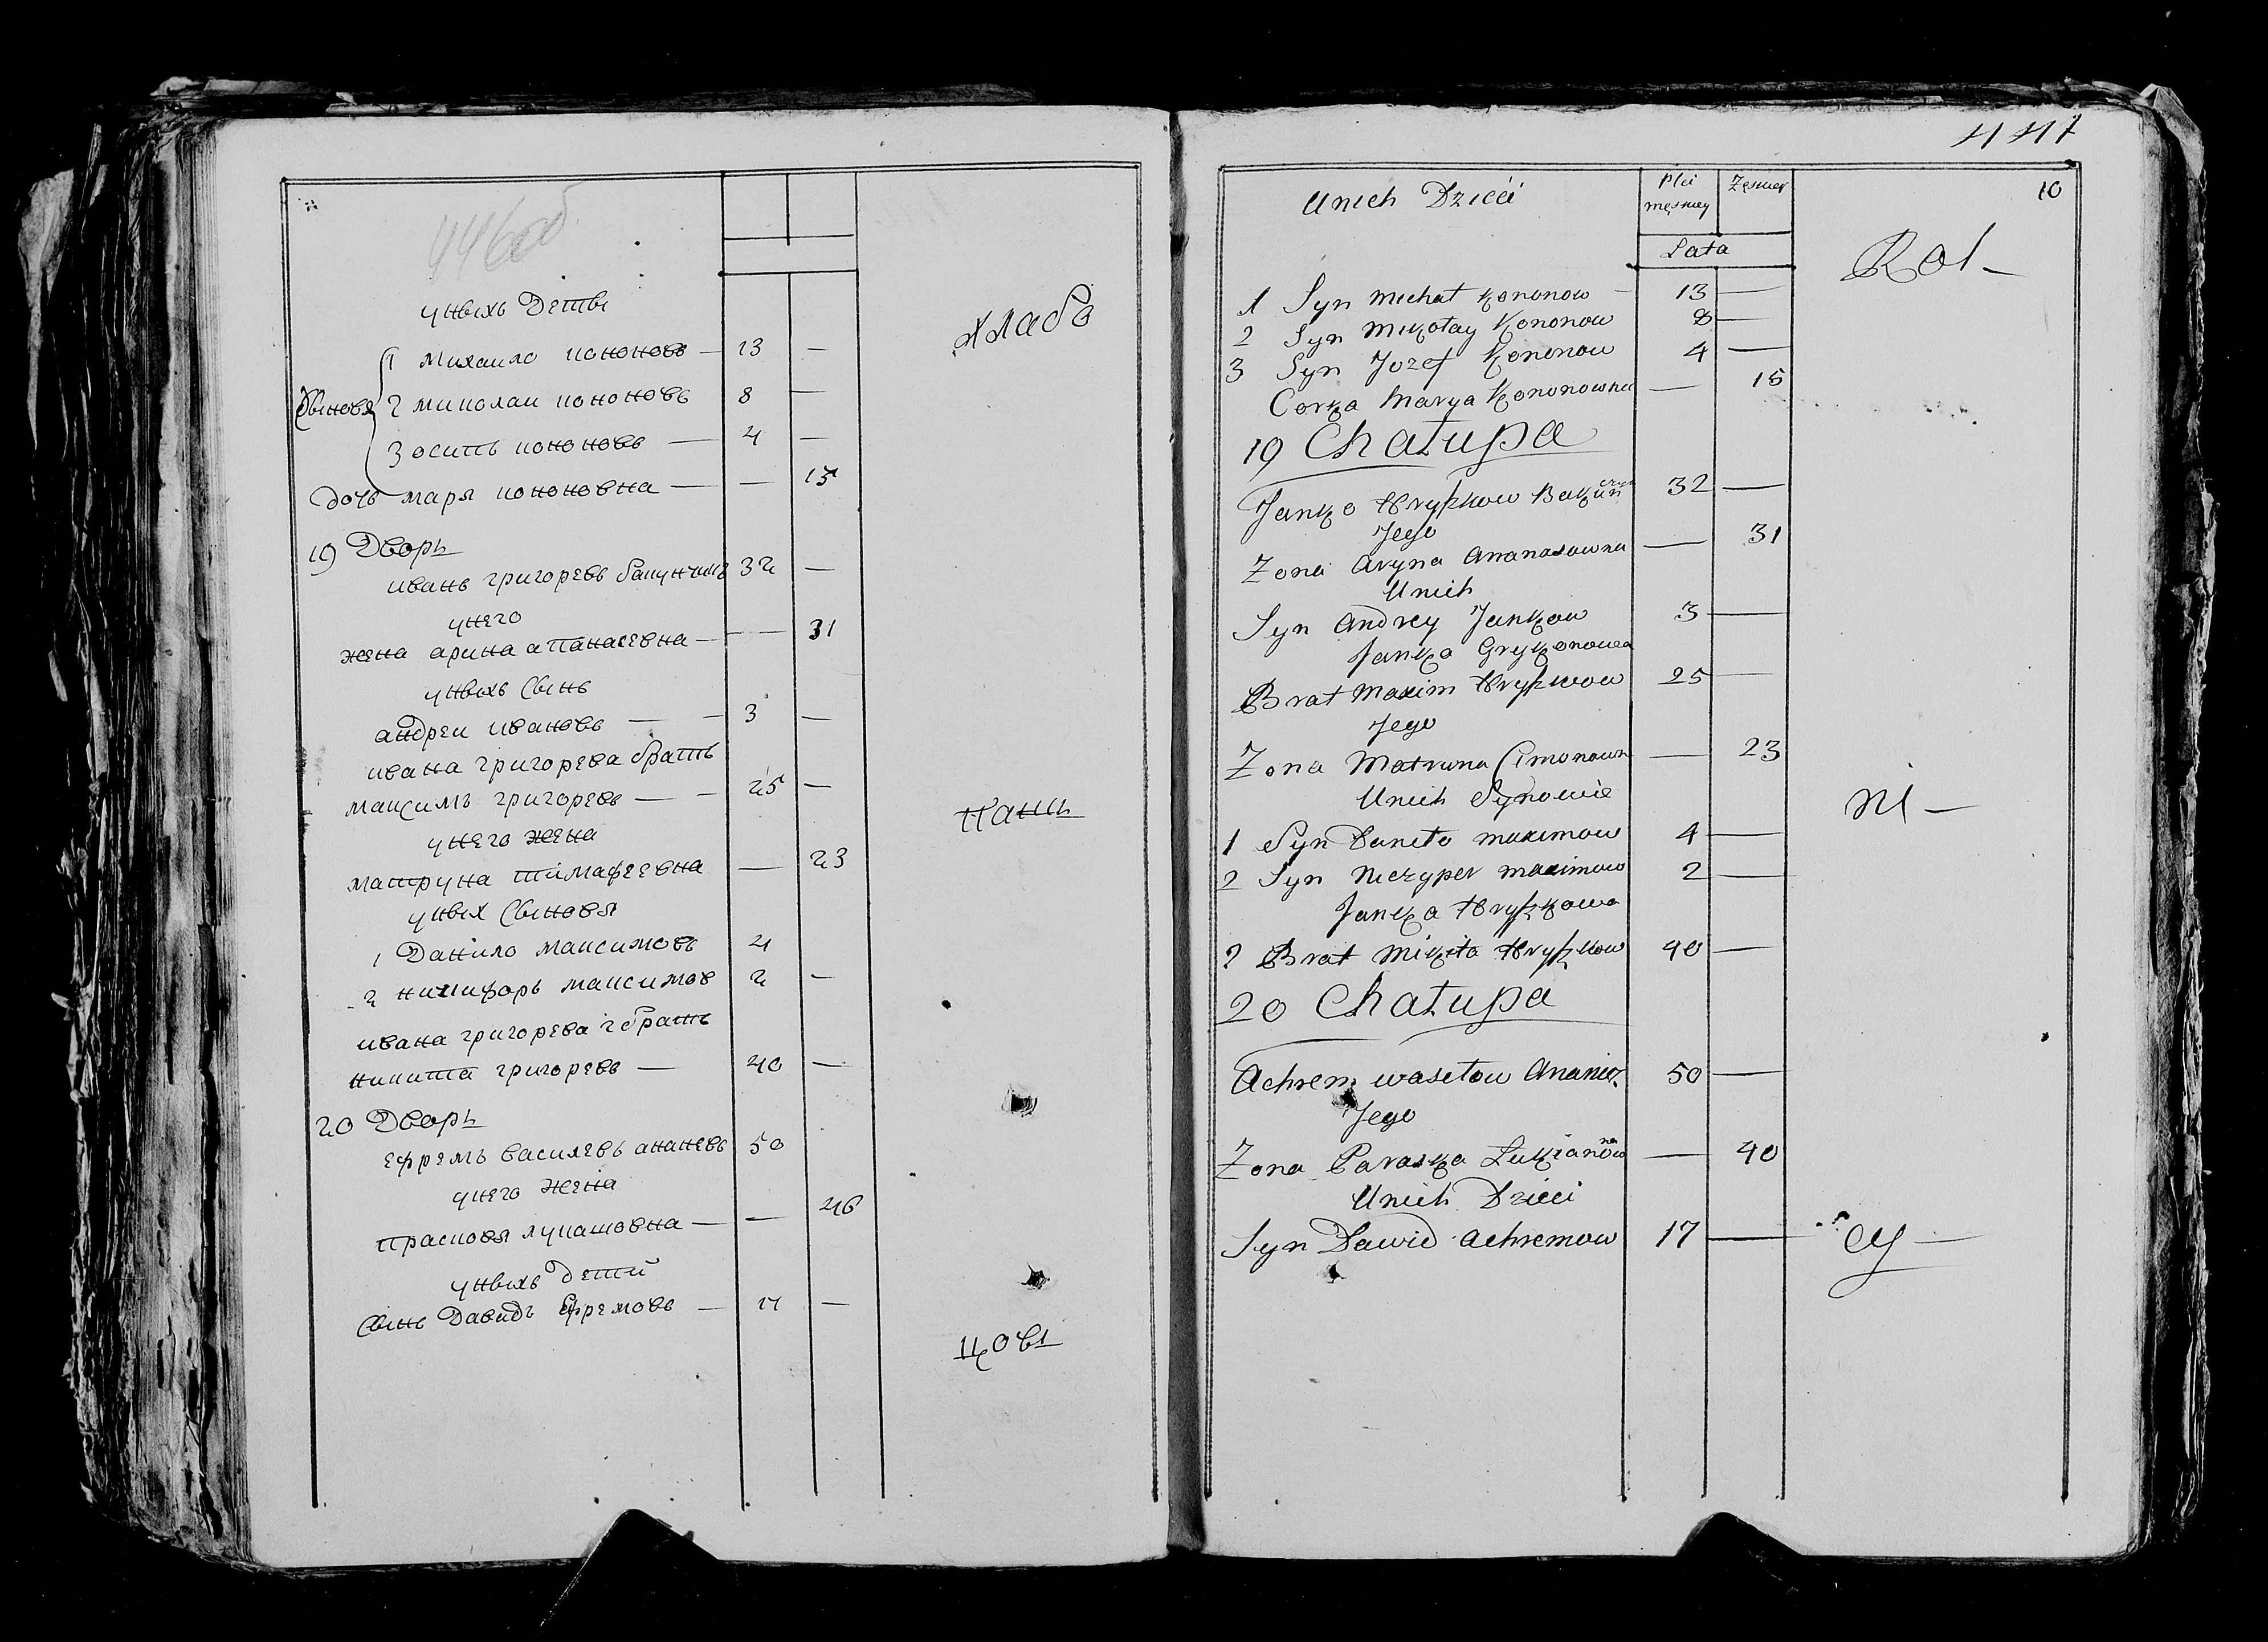 446об.
унихъ Дети
1 Михаило кононовъ — 13 —
Сыновя 2 миколаи кононовъ 8 —
3 осипъ кононовъ — 4 —
дочь маря кононовна — — 15
хлебо
19 Дворъ
иванъ григоревъ бакунчикъ 32 —
унего
жена арина апанасевна — — 31
унихъ Сынъ
андреи ивановъ — 3 —
ивана григорева братъ
максимъ григоревъ — 25 —
унего жена
матруна тимафеевна — 23
уних Сыновя
1 Данило максимовъ 4
2 никифоръ максимов 2 —
ивана григорева 2 братъ
никита григоревъ — 40 —
паш
20 Дворъ
ефремъ василевъ ананевъ 50
унего жена
прасковя лукашовна — — 40
унихъ детеи
Сынъ Давидъ Ефремовъ — 17 —
цовы
447
10
Unich Dzieci
Plci męskiey
Żęskiey
Lata
Rol—
1 Syn Michał Kononow — 13 —
2 Syn Mikołay Kononow 8 —
3 Syn Jozef Kononow 4 —
Corka Marya Kononowna — 15
19 Chałupa
Janko Hryszkow Bakunczyk 32 —
Jego
Zona Aryna Ananasowna — 31
Unich
Syn Andrey Jankow 3 —
Janka
Brat Maxim Hryszkow 25 —
Jego
Zona Matruna Cimonowna — 23
Unich Synowie
ni—
1 Syn Daniło Maximow 4 —
2 Syn Niczyper Maximow 2 —
Janka Hryszkowa
2 Brat Mikita Hryszkow 40 —
20 Chałupa
Achrem Wasilow Ananicz 50 —
Jego
Zona Paraska Lukianowna — 40
Unich Dzieci
Syn Dawid Achremow 17 —
cy—